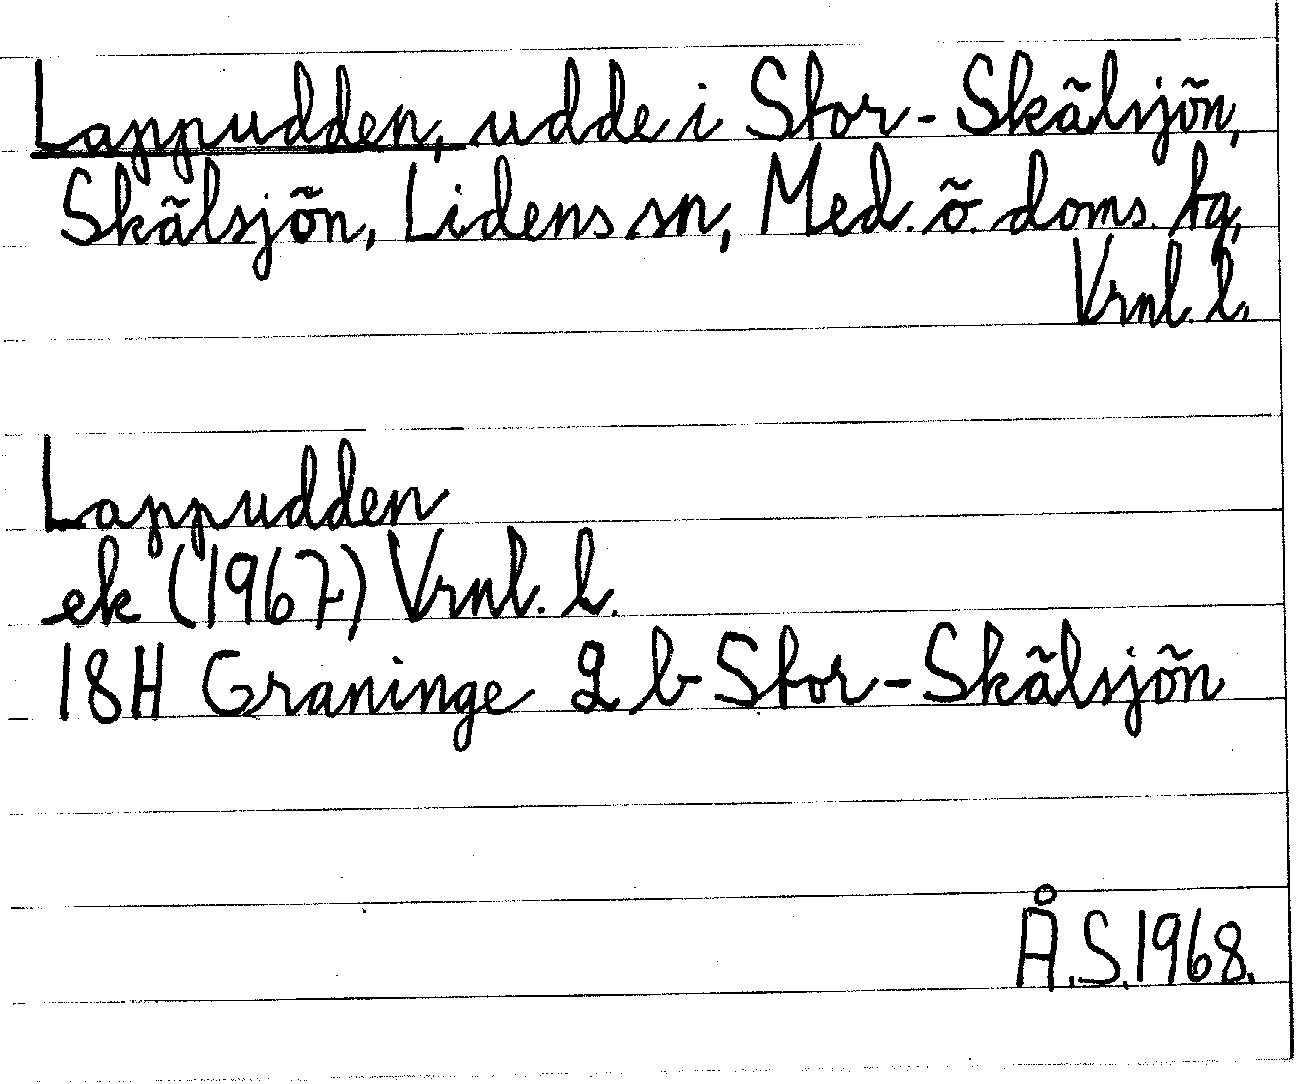 Lappudden, udde i Stor-Skälsjön,
Skälsjön, Lidens sn, Med. ö. doms. tg,
Vrnl. l.
Lappudden
ek (1967) Vrnl. l.
18H Graninge 2 b Stor-Skälsjön
Å.S.1968.